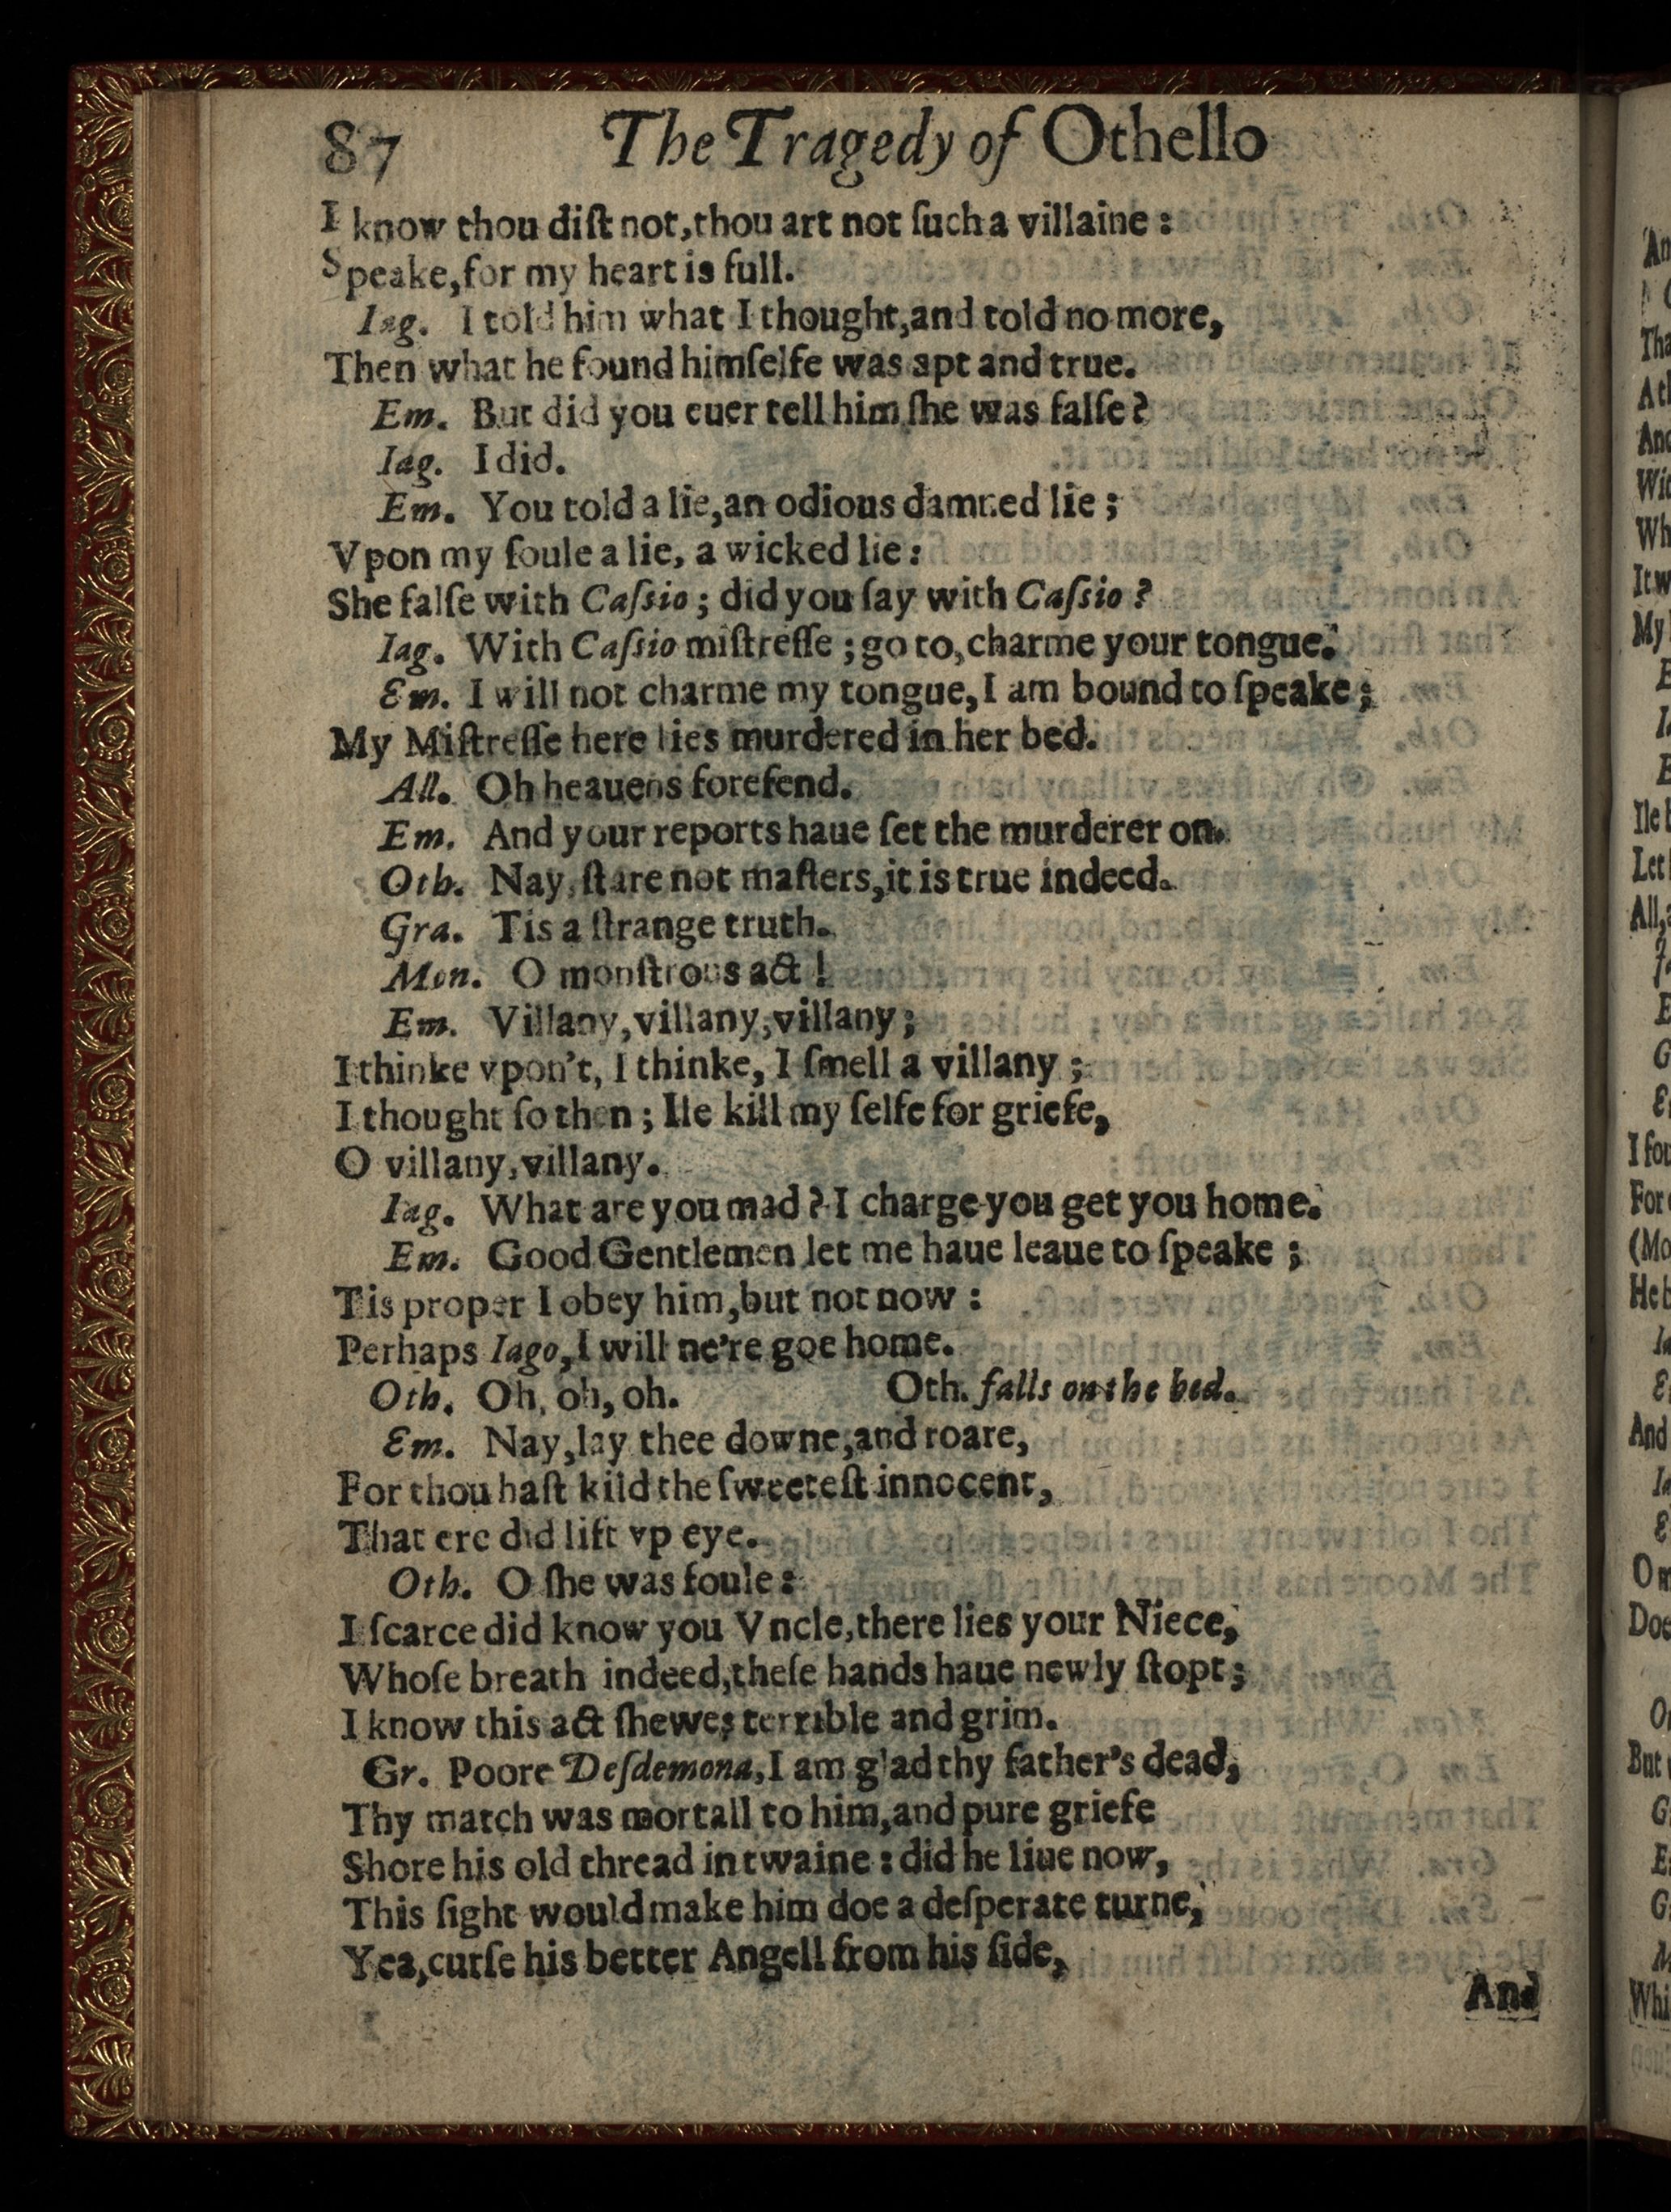 87 The Tragedy of Othello
I know thou diſt not, thou art not ſuch a villaine :
Speake, for my heart is full.
Iag. I told him what I thought, and told no more,
Then what he found himſelfe was apt and true.
Em. But did you euer tell him ſhe was falſe ?
Iag. I did.
Em. You told a lie, an odious damned lie ;
Vpon my ſoule a lie, a wicked lie :
She falſe with Caſsio ; did you ſay with Caſsio ?
Iag. With Caſsio miſtreſſe ; go to, charme your tongue.
Em. I will not charme my tongue, I am bound to ſpeake ;
My Miſtreſſe here lies murdered in her bed.
All. Oh heauens forefend.
Em. And your reports haue ſet the murderer on.
Oth. Nay, ſtare not maſters, it is true indeed.
Gra. Tis a ſtrange truth.
Mon. O monſtrous act !
Em. Villany, villany, villany ;
I thinke vpon't, I thinke, I ſmell a villany ;
I thought ſo then ; Ile kill my ſelfe for griefe,
O villany, villany.
Iag. What are you mad ? I charge you get you home.
Em. Good Gentlemen let me haue leaue to ſpeake ;
Tis proper I obey him, but not now :
Perhaps Iago, I will ne're goe home.
Oth. Oh, oh, oh. Oth. falls on the bed.
Em. Nay, lay thee downe, and roare,
For thou haſt kild the ſweeteſt innocent,
That ere did lift vp eye.
Oth. O ſhe was foule :
I ſcarce did know you Vncle, there lies your Niece,
Whoſe breath indeed, theſe hands haue newly ſtopt ;
I know this act ſhewes terrible and grim.
Gr. Poore Deſdemona, I am glad thy father's dead,
Thy match was mortall to him, and pure griefe
Shore his old thread in twaine : did he liue now,
This ſight would make him doe a deſperate turne,
Yea, curſe his better Angell from his ſide,
And